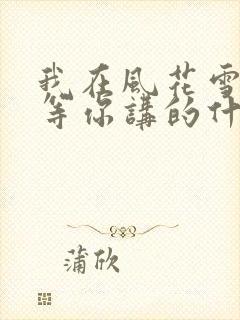 我在風花雪
等你講的什
蒲欣